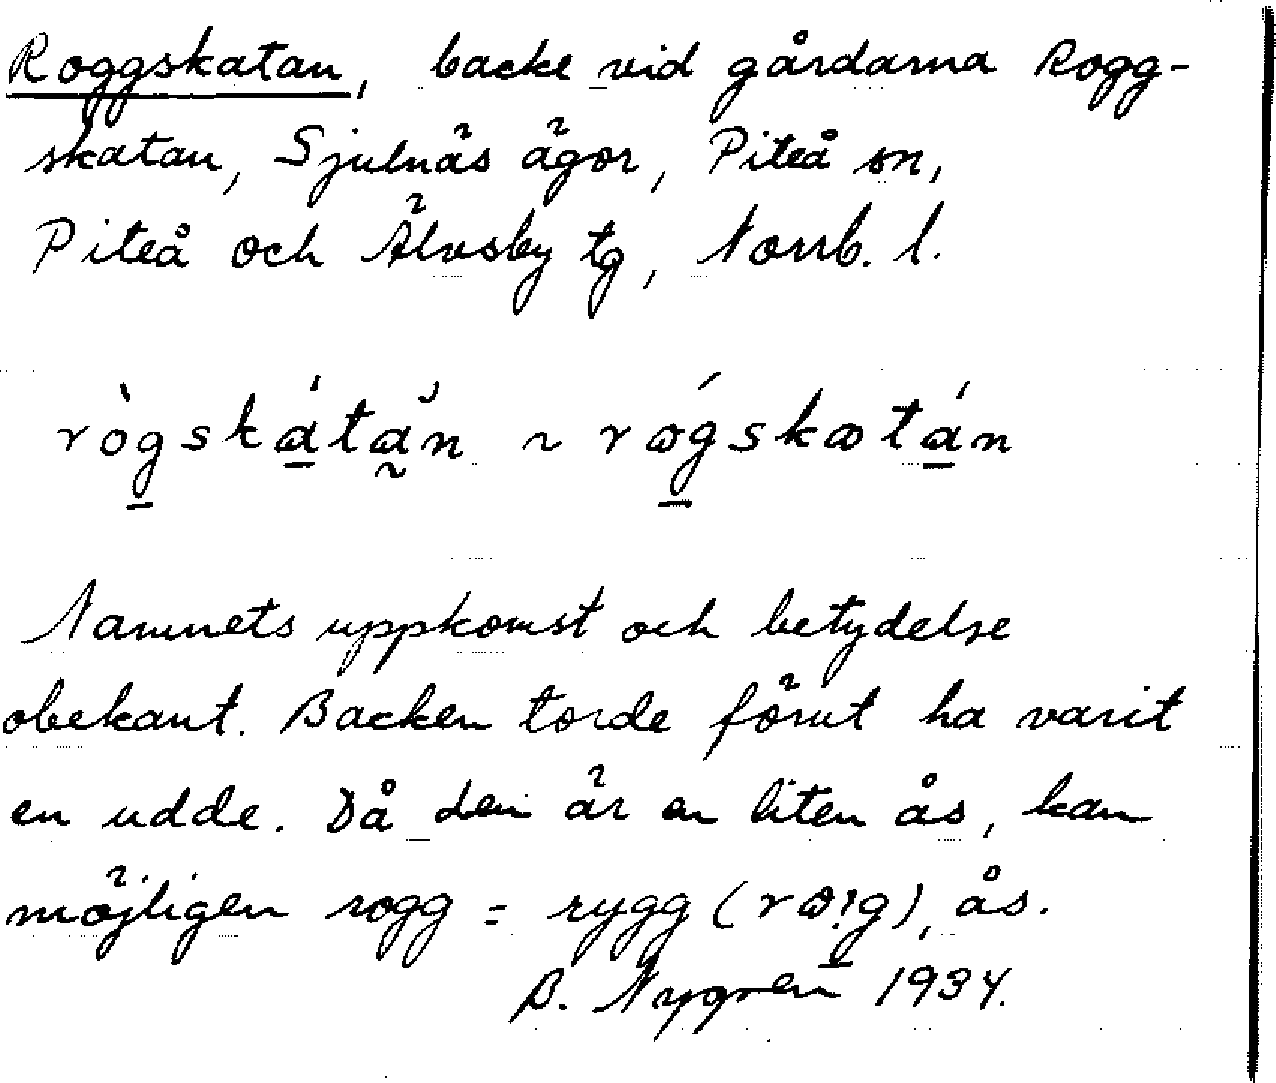 Roggskatan, backe vid gårdarna Rogg-
skatan, Sjulnäs ägor, Piteå sn,
Piteå och Älvsby tg, Norrb. l.
rògskátan ~ rɷgskɷtán
Namnets uppkomst och betydelse
obekant. Backen torde förut ha varit
en udde. Då den är en liten ås, kan
möjligen rogg = rygg (rɷ!g), ås.
B. Nygren 1934.